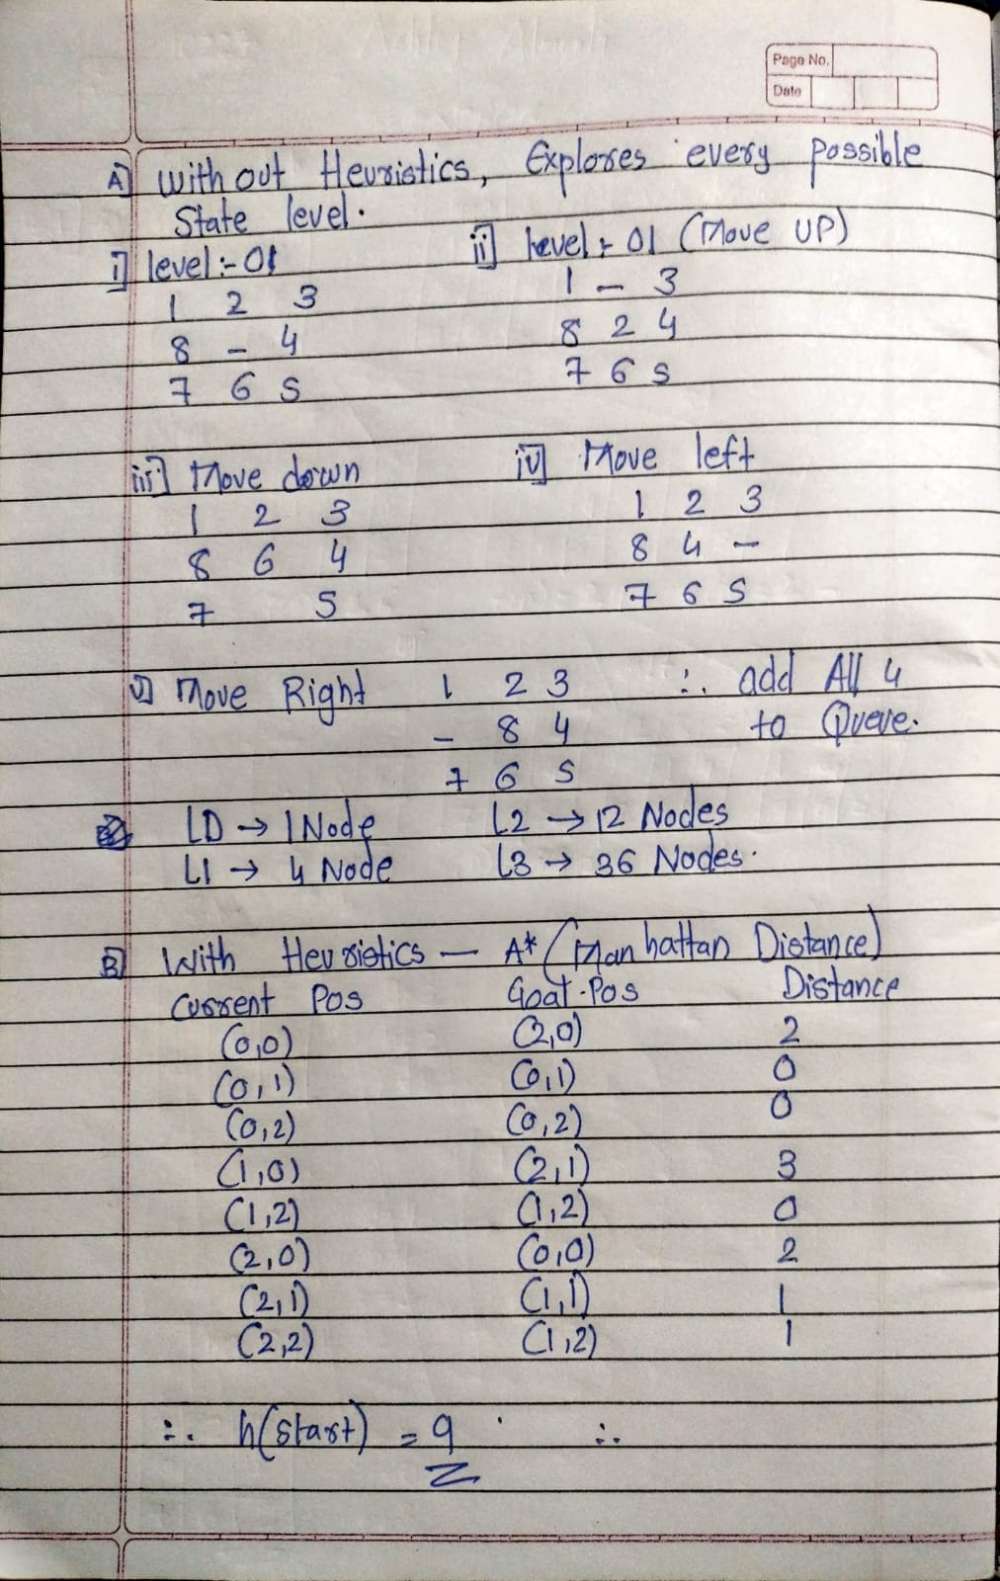 Page No.
Date
A] Without Heuristics, Explores every possible
State level.
i] level:- 01
1 2 3
8 - 4
7 6 5
ii] level:- 01 (Move UP)
1 - 3
8 2 4
7 6 5
iii] Move down
1 2 3
8 6 4
7 5
iv] Move left
1 2 3
8 4 -
7 6 5
v] Move Right
1 2 3
- 8 4
7 6 5
∴ add All 4
to Queue.
L0 → 1 Node L2 → 12 Nodes
L1 → 4 Node L3 → 36 Nodes.
B] With Heuristics — A* (Manhattan Distance)
Current Pos Goal-Pos Distance
(0,0) (2,0) 2
(0,1) (0,1) 0
(0,2) (0,2) 0
(1,0) (2,1) 3
(1,2) (1,2) 0
(2,0) (0,0) 2
(2,1) (1,1) 1
(2,2) (1,2) 1
∴ h(start) = 9 ∴